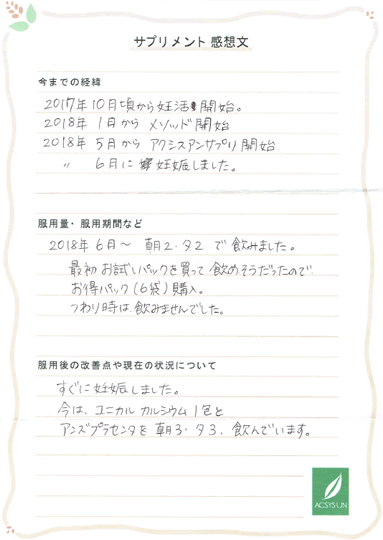 サプリメント 感想文
今までの経緯
2017年10月頃から妊活開始。
2018年 1月から メソッド開始
2018年 5月から アクシスアンサプリ開始
〃 6月に 妊娠しました。
服用量・服用期間など
2018年6月〜 朝2・夕2 で飲みました。
最初お試しパックを買って飲めそうだったので
お得パック(6袋)購入。
つわり時は飲みませんでした。
服用後の改善点や現在の状況について
すぐに妊娠しました。
今は、ユニカル カルシウム1包と
アンズプラセンタを朝3・夕3、飲んでいます。
ACSYSUN